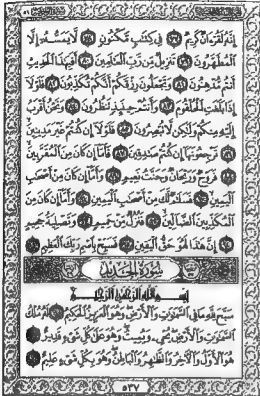 إِنَّهُ لَقُرْءَانٌ كَرِيمٌ ٧٧ فِى كِتَٰبٍ مَّكْنُونٍ ٧٨ لَّا يَمَسُّهُۥٓ إِلَّا
ٱلْمُطَهَّرُونَ ٧٩ تَنزِيلٌ مِّن رَّبِّ ٱلْعَٰلَمِينَ ٨٠ أَفَبِهَٰذَا ٱلْحَدِيثِ
أَنتُم مُّدْهِنُونَ ٨١ وَتَجْعَلُونَ رِزْقَكُمْ أَنَّكُمْ تُكَذِّبُونَ ٨٢ فَلَوْلَآ
إِذَا بَلَغَتِ ٱلْحُلْقُومَ ٨٣ وَأَنتُمْ حِينَئِذٍ تَنظُرُونَ ٨٤ وَنَحْنُ أَقْرَبُ
إِلَيْهِ مِنكُمْ وَلَٰكِن لَّا تُبْصِرُونَ ٨٥ فَلَوْلَآ إِن كُنتُمْ غَيْرَ مَدِينِينَ
٨٦ تَرْجِعُونَهَآ إِن كُنتُمْ صَٰدِقِينَ ٨٧ فَأَمَّآ إِن كَانَ مِنَ ٱلْمُقَرَّبِينَ
٨٨ فَرَوْحٌ وَرَيْحَانٌ وَجَنَّتُ نَعِيمٍ ٨٩ وَأَمَّآ إِن كَانَ مِنْ أَصْحَٰبِ
ٱلْيَمِينِ ٩٠ فَسَلَٰمٌ لَّكَ مِنْ أَصْحَٰبِ ٱلْيَمِينِ ٩١ وَأَمَّآ إِن كَانَ مِنَ
ٱلْمُكَذِّبِينَ ٱلضَّآلِّينَ ٩٢ فَنُزُلٌ مِّنْ حَمِيمٍ ٩٣ وَتَصْلِيَةُ جَحِيمٍ
٩٤ إِنَّ هَٰذَا لَهُوَ حَقُّ ٱلْيَقِينِ ٩٥ فَسَبِّحْ بِٱسْمِ رَبِّكَ ٱلْعَظِيمِ ٩٦
سُورَةُ الحَدِيدِ
بِسْمِ ٱللَّهِ ٱلرَّحْمَٰنِ ٱلرَّحِيمِ
سَبَّحَ لِلَّهِ مَا فِى ٱلسَّمَٰوَٰتِ وَٱلْأَرْضِ وَهُوَ ٱلْعَزِيزُ ٱلْحَكِيمُ ١ لَهُۥ مُلْكُ
ٱلسَّمَٰوَٰتِ وَٱلْأَرْضِ يُحْىِۦ وَيُمِيتُ وَهُوَ عَلَىٰ كُلِّ شَىْءٍ قَدِيرٌ ٢
هُوَ ٱلْأَوَّلُ وَٱلْءَاخِرُ وَٱلظَّٰهِرُ وَٱلْبَاطِنُ وَهُوَ بِكُلِّ شَىْءٍ عَلِيمٌ ٣
٥٣٧